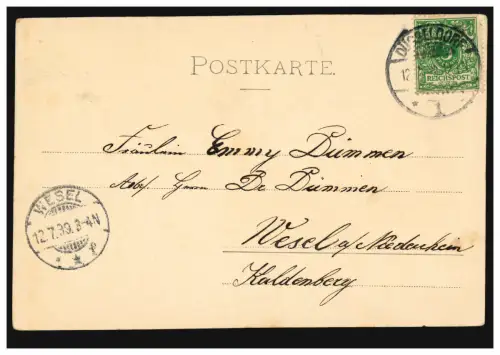 DÜSSELDORF
12
1
REICHSPOST
POSTKARTE.
Fräulein Emmy Dümmen
Herrn Dr Dümmen
WESEL
12.7.99.3-4N
Wesel a/Niederrhein
Kaldenberg